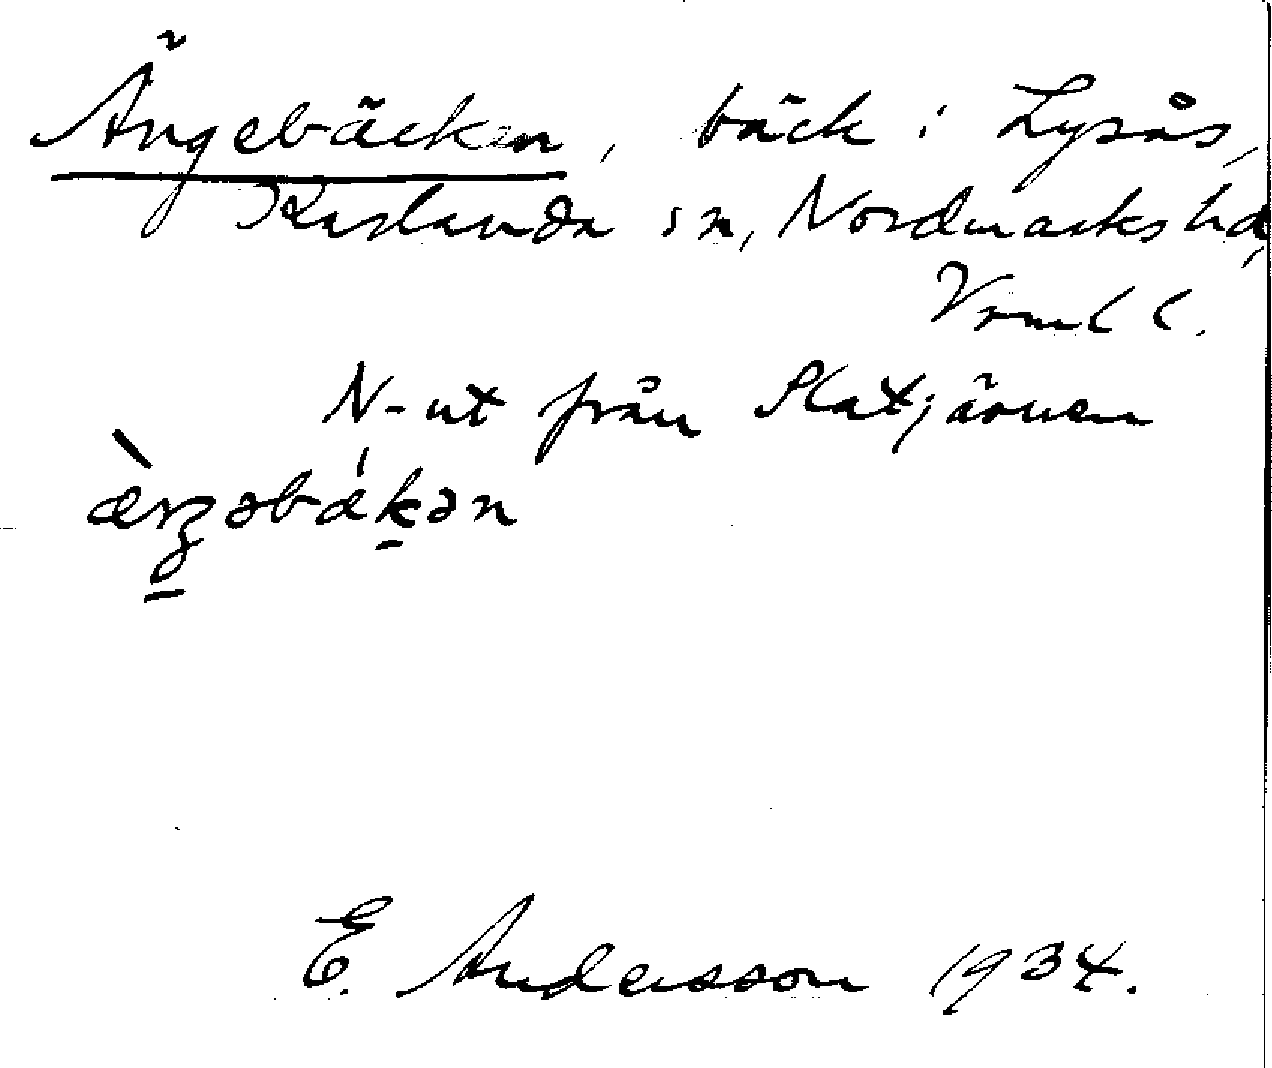 Ängebäcken, bäck i Lysås,
Karlanda sn, Nordmarks hd,
Vrml l.
N-ut från Slatjärnen
æ̀ŋəbækən
E. Andersson 1934.